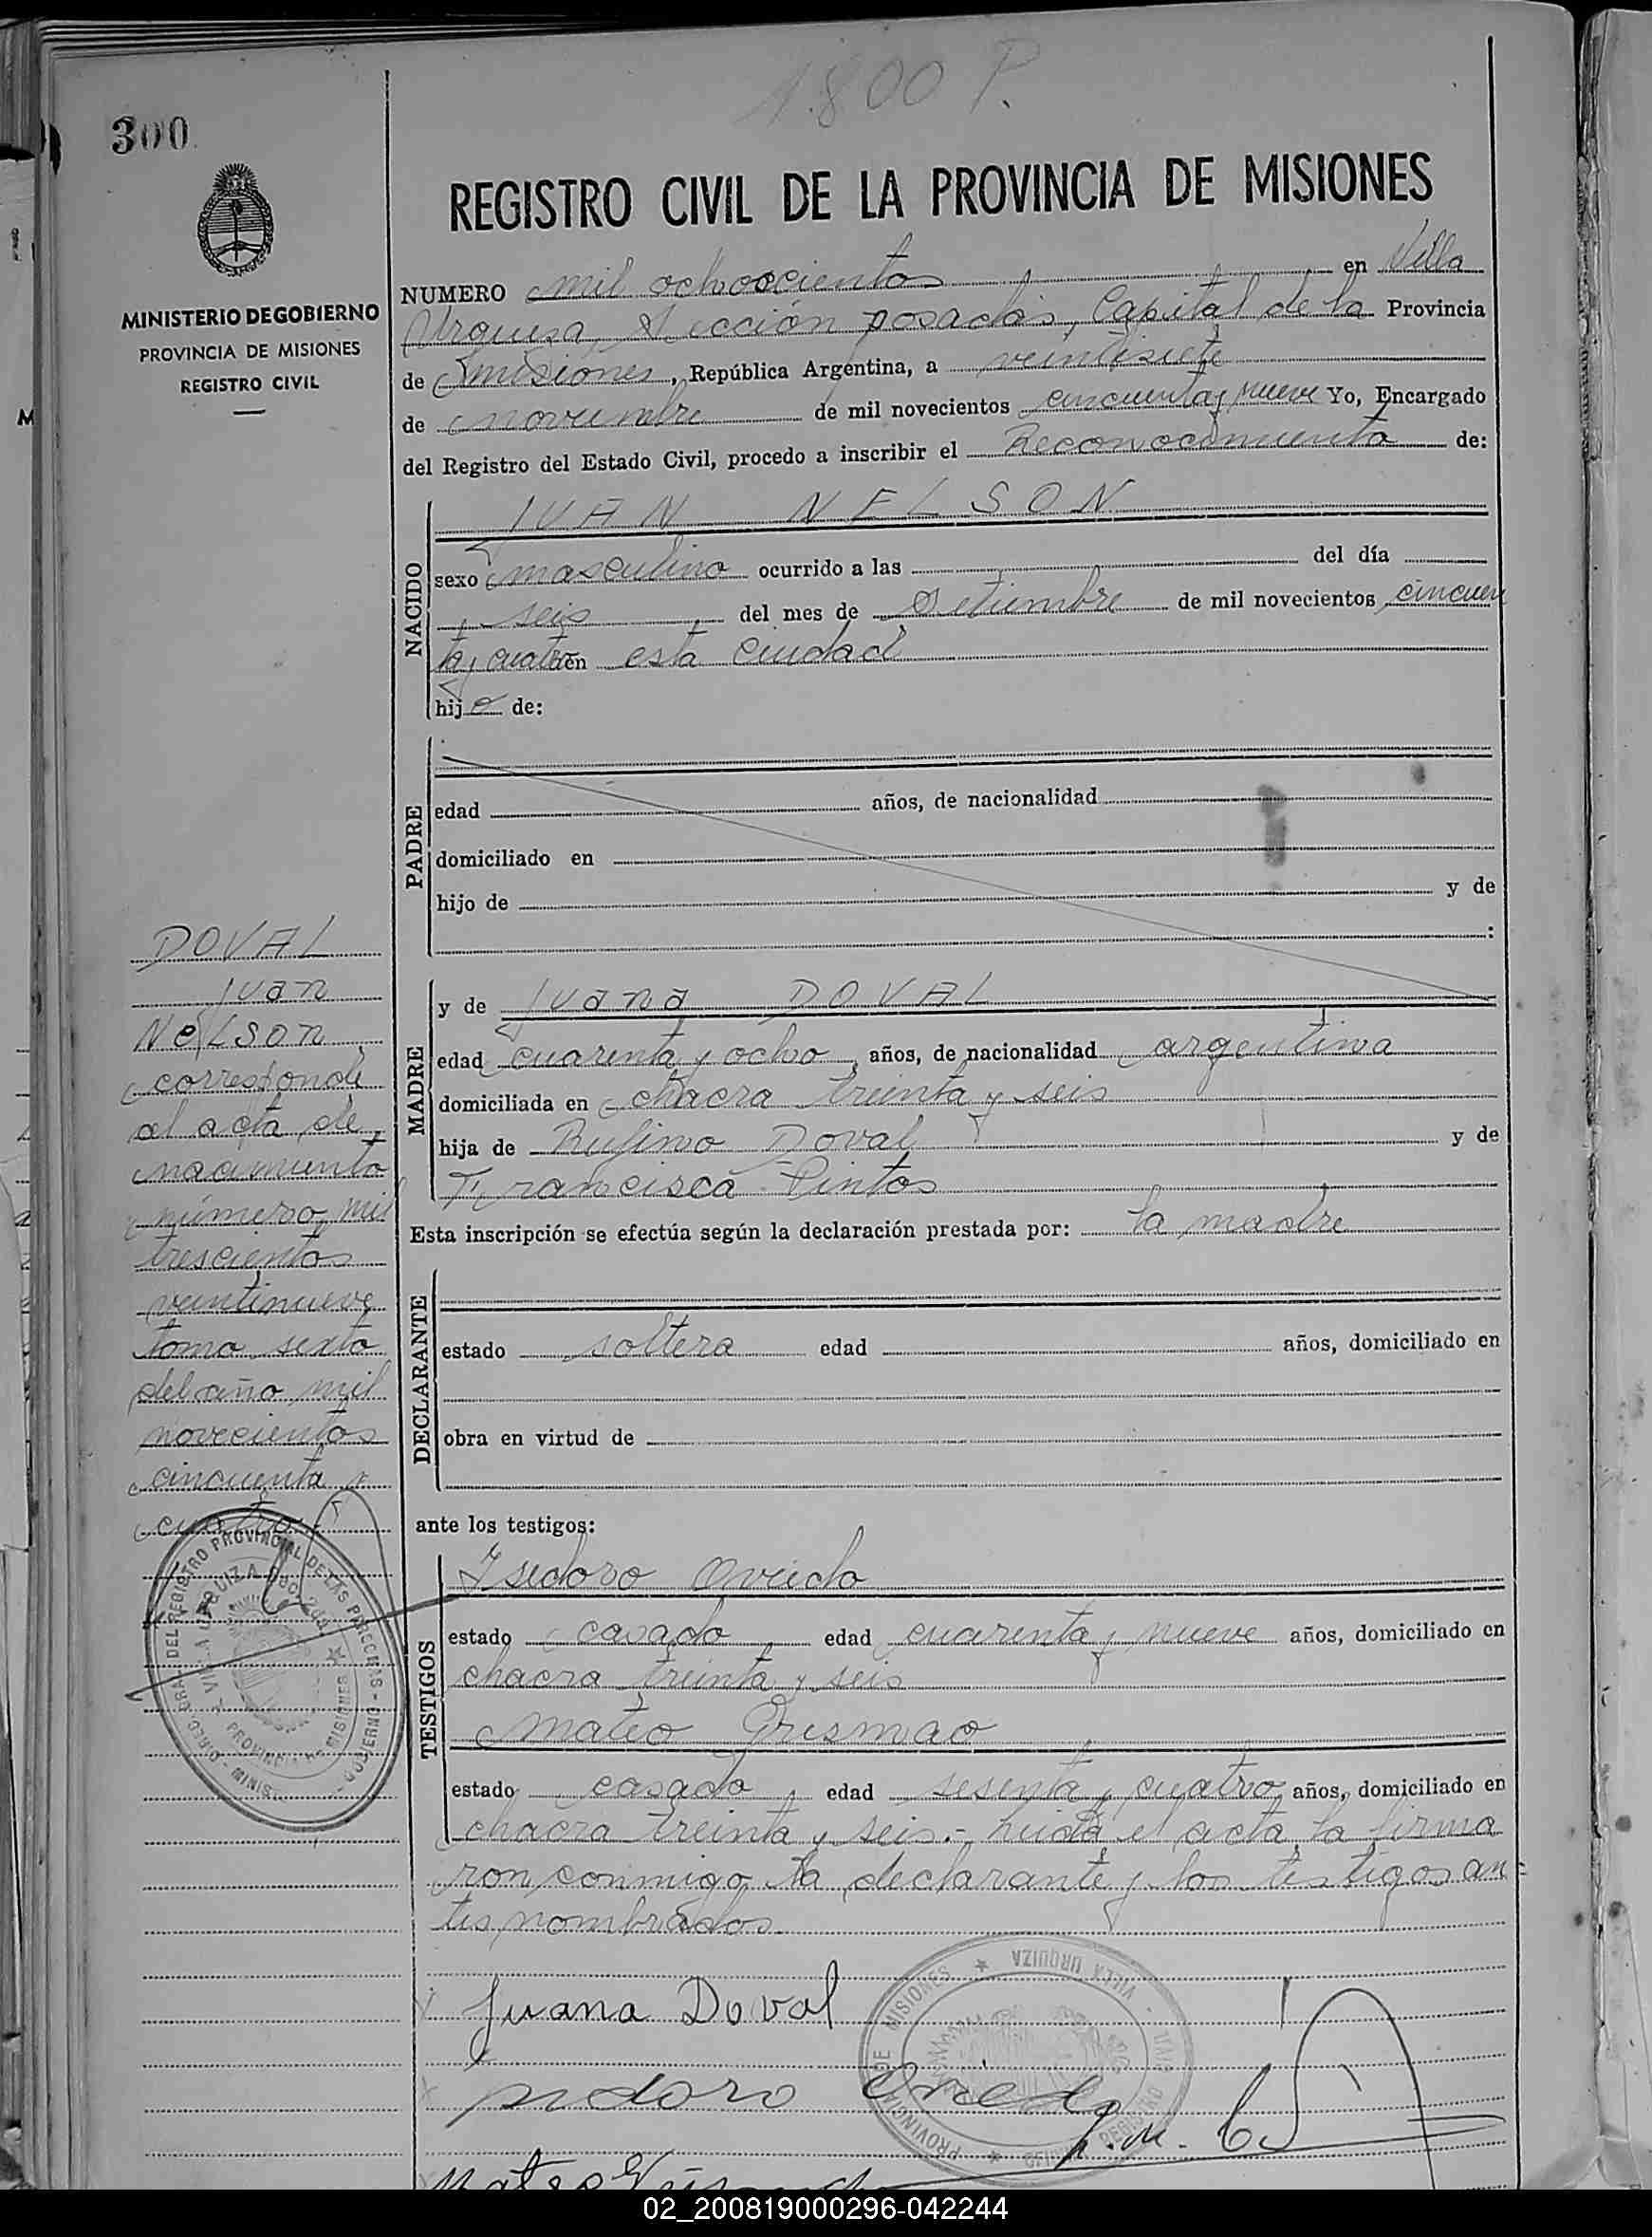 1.800 P.
300
REGISTRO CIVIL DE LA PROVINCIA DE MISIONES
MINISTERIO DE GOBIERNO
PROVINCIA DE MISIONES
REGISTRO CIVIL
NUMERO mil ochocientos en Villa
Urquiza, Sección posadas, Capital de la Provincia
de Misiones, República Argentina, a veintisiete
de noviembre de mil novecientos cincuenta y nueve Yo, Encargado
del Registro del Estado Civil, procedo a inscribir el Reconocimiento de:
NACIDO
JUAN NELSON
sexo masculino ocurrido a las del día
seis del mes de Setiembre de mil novecientos cincuen
ta y cuatro en esta Ciudad
hijo de:
PADRE
edad años, de nacionalidad
domiciliado en
hijo de y de
:
MADRE
y de Juana DOVAL
edad cuarenta y ocho años, de nacionalidad argentina
domiciliada en chacra treinta y seis
hija de Rufino Doval y de
Francisca Pintos
Esta inscripción se efectúa según la declaración prestada por: la madre
DECLARANTE
estado soltera edad años, domiciliado en
obra en virtud de
ante los testigos:
TESTIGOS
Isidoro Oviedo
estado casado edad cuarenta y nueve años, domiciliado en
chacra treinta y seis
Mateo Grismao
estado casado edad sesenta y cuatro años, domiciliado en
chacra treinta y seis.- Leída el acta, la firma
ron conmigo la declarante y los testigos an=
tes nombrados.
DOVAL
Juan
NeLSON
corresponde
al acta de
nacimiento
número mil
trescientos
veintinueve
tomo sexto
del año mil
novecientos
cincuenta y
cuatro
DIREC. GRAL. DEL REGISTRO PROVINCIAL DE LAS PERSONAS
VILLA URQUIZA
PROVINCIA DE MISIONES
x Juana Doval
x isidoro Oviedo
x Mateo
PROVINCIA DE MISIONES ★ VILLA URQUIZA
02_200819000296-042244